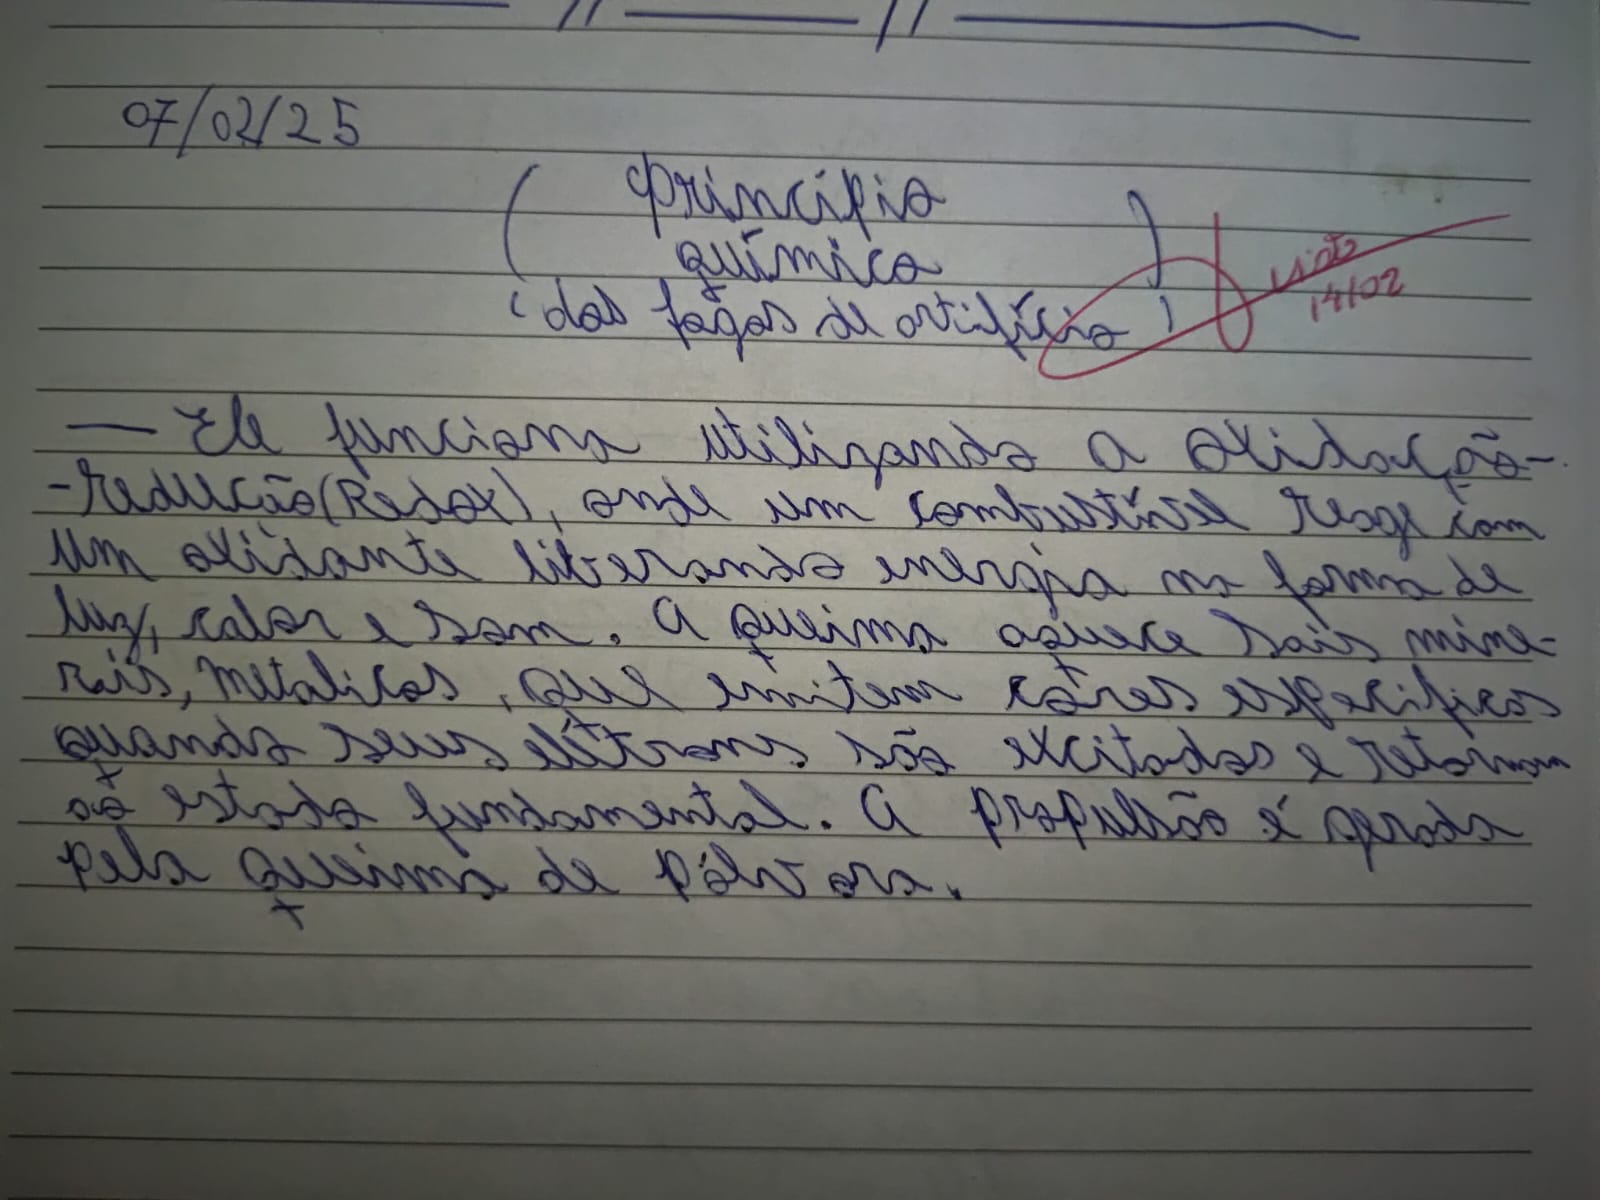 07/02/25
( Princípio )
químico
(dos fogos de artifício)
Visto
14/02
— Ele funciona utilizando a oxidação-
-redução(Redox), onde um combustível reage com
um oxidante liberando energia na forma de
luz, calor e som. A queima aquece sais mine-
rais, metalicos, que emitem côres especificas
quando seus elétrons são excitados e retornam
ao estado fundamental. A propulsão é gerada
pela queima de pólvora.